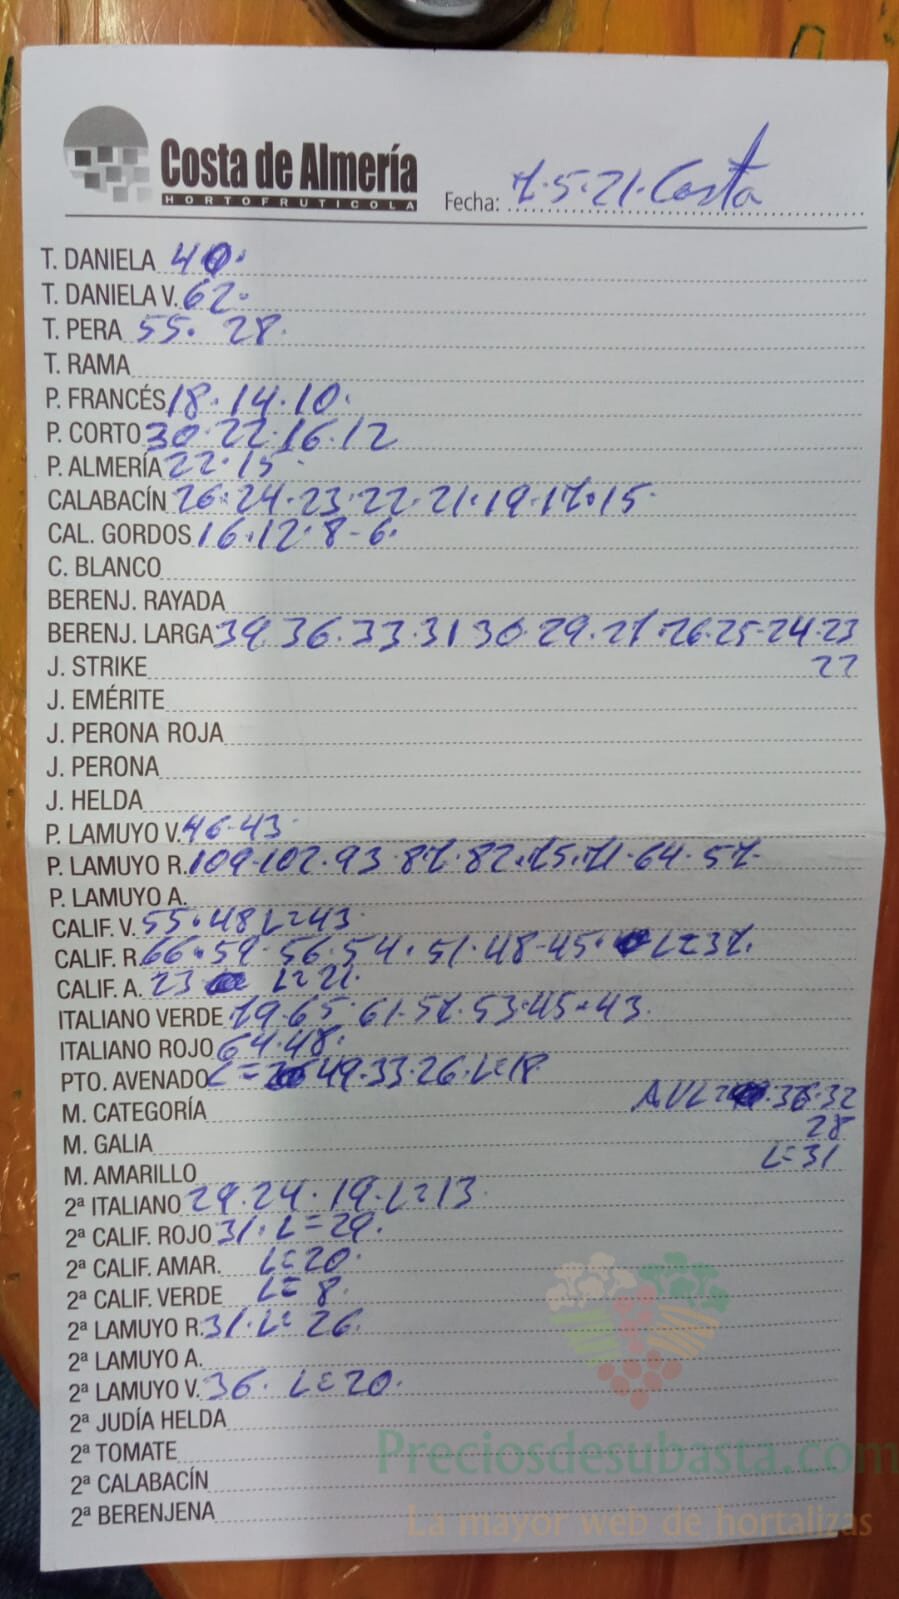 Costa de Almería
HORTOFRUTICOLA
Fecha: 7.5.21. Costa
T. DANIELA 40.
T. DANIELA V. 62.
T. PERA 55. 28.
T. RAMA
P. FRANCÉS 18.14.10.
P. CORTO 30.22.16.12
P. ALMERÍA 22.15
CALABACÍN 26.24.23.22.21.19.17.15.
CAL. GORDOS 16.12.8-6.
C. BLANCO
BERENJ. RAYADA
BERENJ. LARGA 39.36.33.31 30.29.27.26.25-24.23
J. STRIKE 22
J. EMÉRITE
J. PERONA ROJA
J. PERONA
J. HELDA
P. LAMUYO V. 46-43.
P. LAMUYO R. 109-102.93.87.82.75.71.64.57-
P. LAMUYO A.
CALIF. V. 55.48 L=43.
CALIF. R. 66.59.56.54.51.48-45. L=37.
CALIF. A. 23 L=21.
ITALIANO VERDE 79.65.61.57.53.45-43.
ITALIANO ROJO 64.48.
PTO. AVENADO L= 49.33.26.L=18
M. CATEGORÍA .36.32
M. GALIA 28
M. AMARILLO L=31
2ª ITALIANO 29.24.19.L=13
2ª CALIF. ROJO 31. L=29.
2ª CALIF. AMAR. L=20.
2ª CALIF. VERDE L=8.
2ª LAMUYO R. 31.L=26.
2ª LAMUYO A.
2ª LAMUYO V. 36. L=20.
2ª JUDÍA HELDA
2ª TOMATE
Preciosdesubasta.com
2ª CALABACÍN
2ª BERENJENA
La mayor web de hortalizas